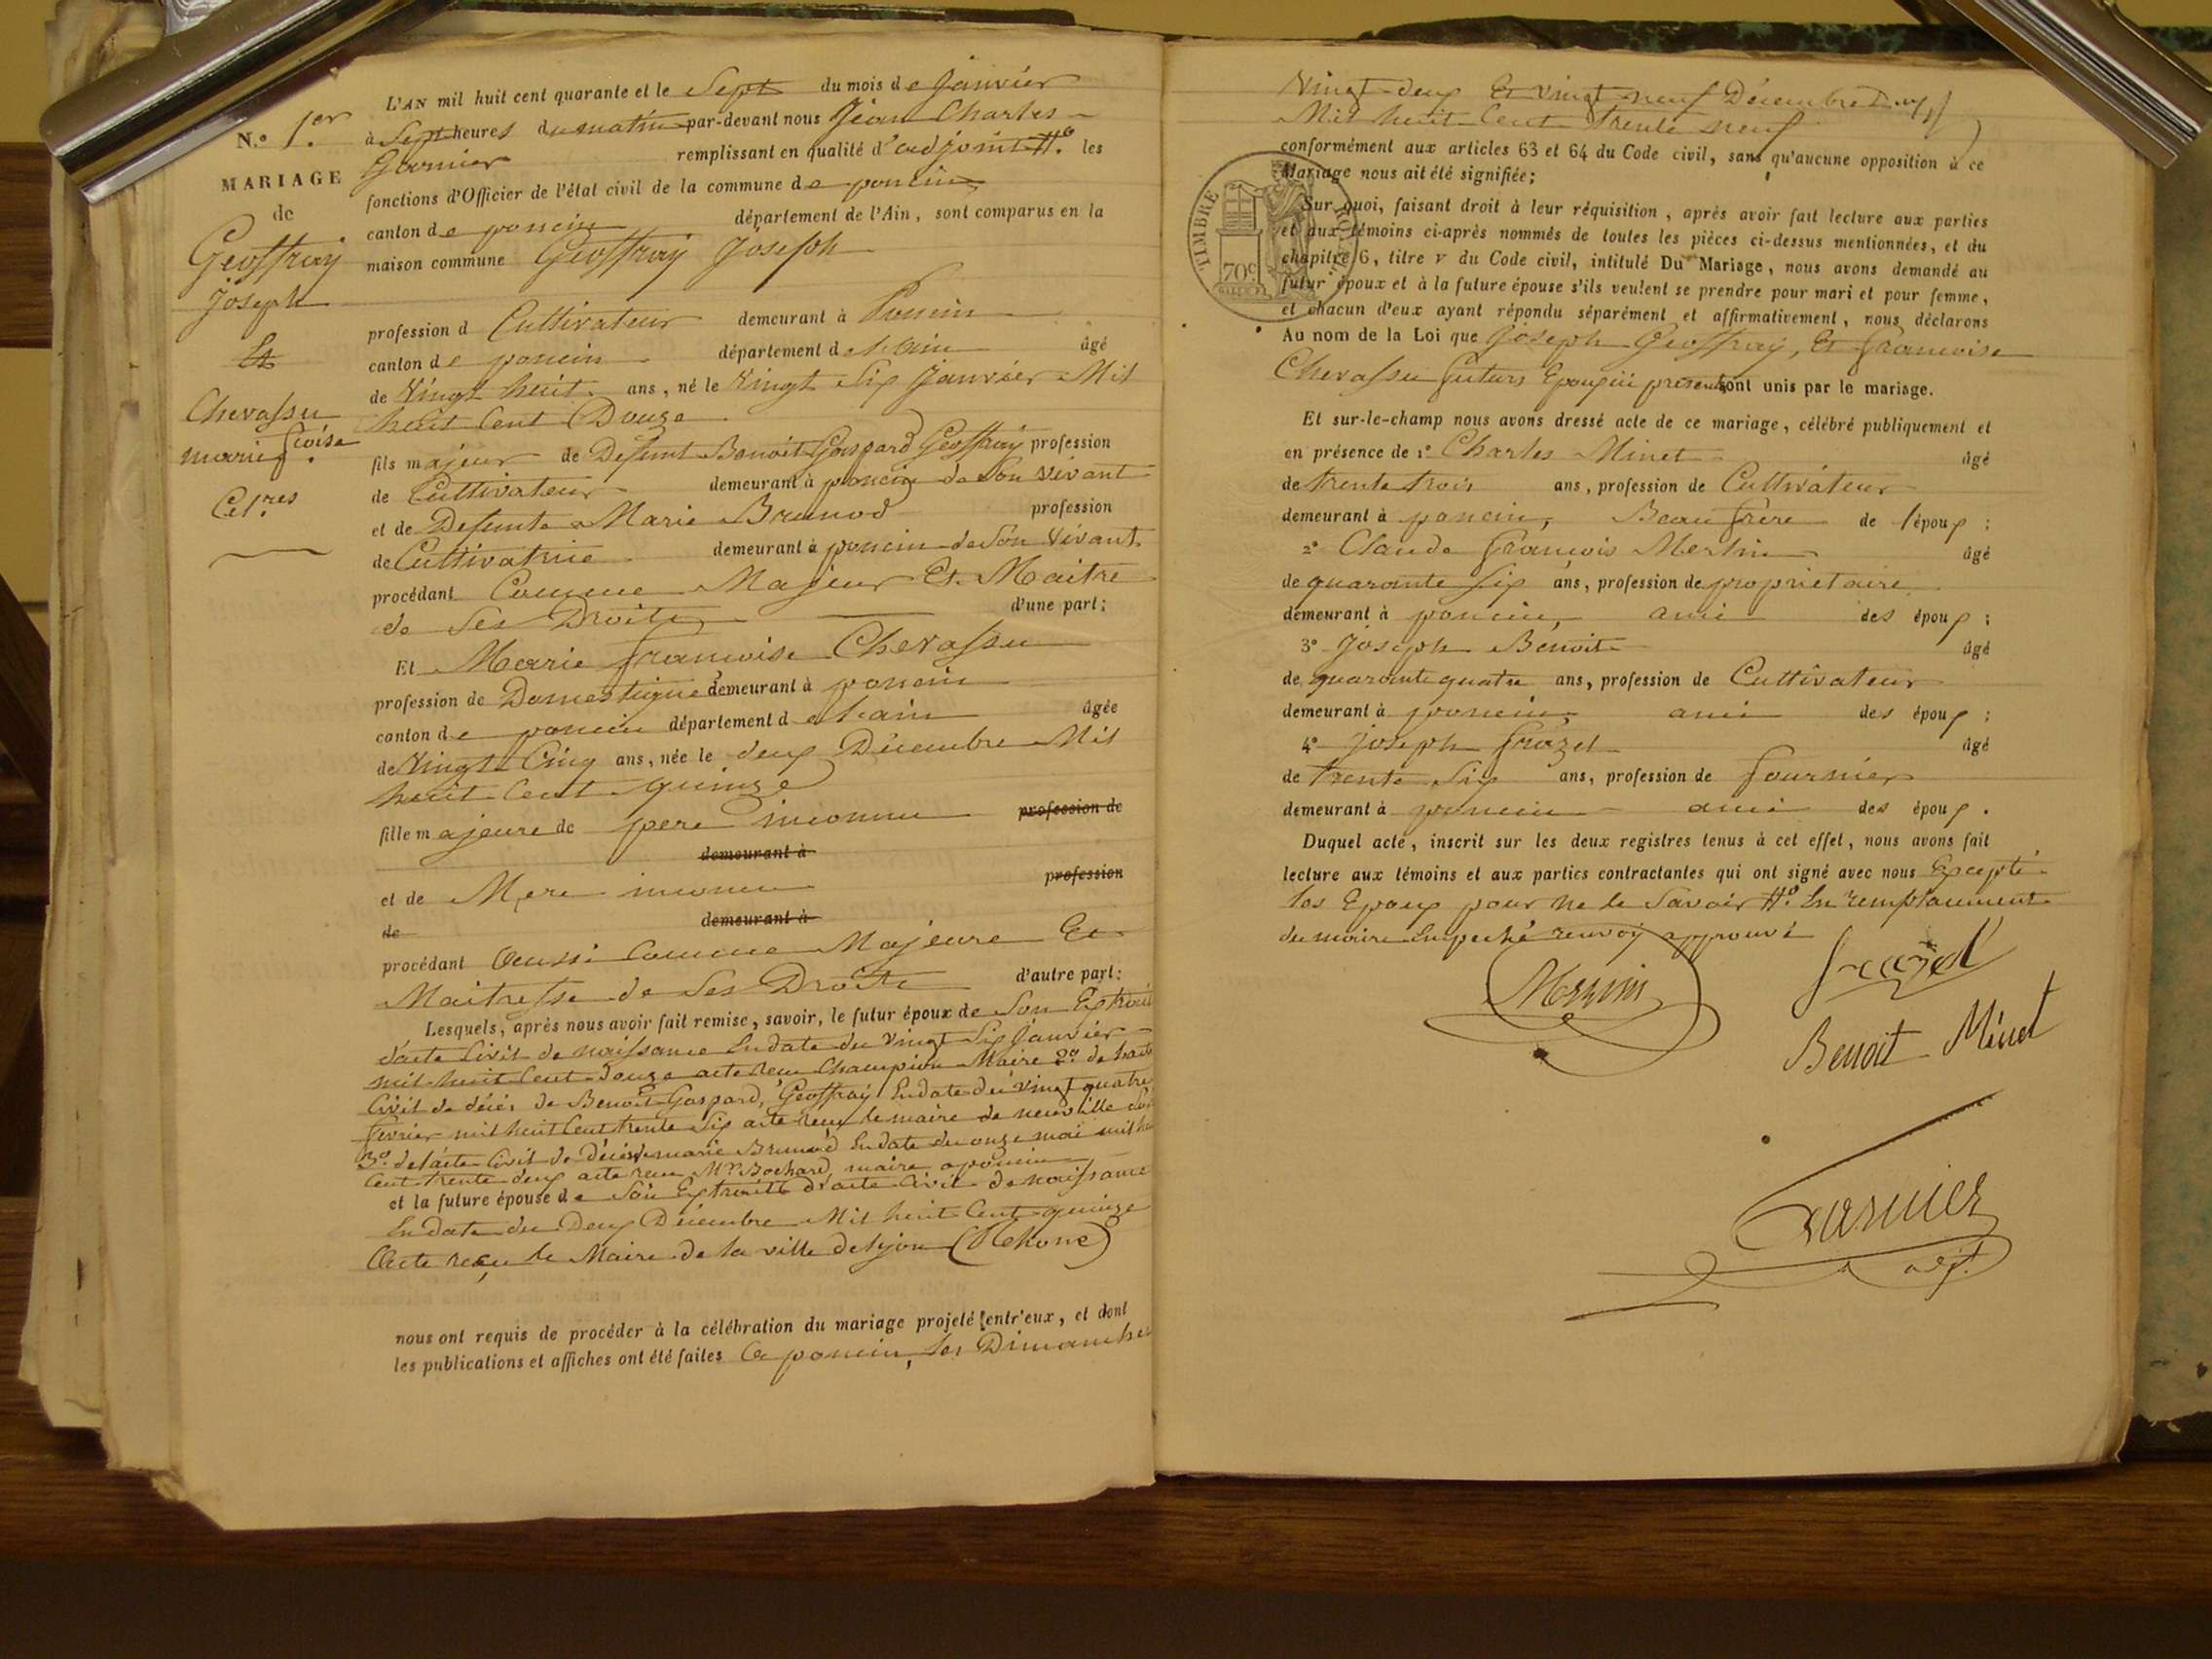 N.º 1.er
MARIAGE
de
Geoffray
Joseph
Et
Chevassu
marie f.coise
Cel.res
L'AN mil huit cent quarante et le Sept du mois de Janvier
à Sept heures du matin par-devant nous Jean Charles
Garnier remplissant en qualité d'adjoint #.º les
fonctions d'Officier de l'état civil de la commune de poncin
canton de poncin département de l'Ain, sont comparus en la
maison commune Geoffray Joseph
profession d Cultivateur demeurant à Poncin
canton de poncin département de L'ain âgé
de Vingt huit ans, né le Vingt Six Janvier Mil
huit Cent Douze
fils majeur de Defunt Benoit Gaspard Geoffray profession
de Cultivateur demeurant à poncin de Son vivant
et de Defunte Marie Brunod profession
de Cultivatrice demeurant à poncin de Son Vivant
procédant Comme Majeur Et Maitre
de Ses Droits d'une part;
Et Marie françoise Chevassu
profession de Domestique demeurant à poncin
canton de poncin département de L'ain âgée
de Vingt Cinq ans, née le deux Décembre Mil
huit Cent quinze
fille majeure de pere inconnu profession de
demeurant à
et de Mere inconnu profession
de demeurant à
procédant Aussi Comme Majeure Et
Maitresse de Ses Droits d'autre part;
Lesquels, après nous avoir fait remise, savoir, le futur époux de Son Extrait
d'acte Civil de naissance En date du Vingt Six Janvier
mil huit Cent Douze acte recu Champion Maire 2º de l'acte
Civil de décés de Benoit Gaspard, Geoffray En date du vingt quatre
fevrier mil huit Cent trente Six acte recu le maire de neuville
3º de l'acte Civil de Décés de marie Brunod En date du onze mai mil
Cent trente deux acte recu Mr Bochard, maire a poncin
et la future épouse de Son Extrait d'acte Civil de naissance
En date du Deux Décembre Mil huit Cent quinze
Acte reçu le Maire de la ville de Lyon (Rhone)
nous ont requis de procéder à la célébration du mariage projeté entr'eux, et dont
les publications et affiches ont été faites A poncin, les Dimanches
Vingt-deux Et vingt neuf Décembre
Mil huit Cent Trente neuf
conformément aux articles 63 et 64 du Code civil, sans qu'aucune opposition à ce
Mariage nous ait été signifiée;
TIMBRE ROYAL
70c
Sur quoi, faisant droit à leur réquisition, après avoir fait lecture aux parties
et aux témoins ci-après nommés de toutes les pièces ci-dessus mentionnées, et du
chapitre 6, titre v du Code civil, intitulé Du Mariage, nous avons demandé au
futur époux et à la future épouse s'ils veulent se prendre pour mari et pour femme,
et chacun d'eux ayant répondu séparément et affirmativement, nous déclarons
Au nom de la Loi que Joseph Geoffray, Et françoise
Chevassu futurs Epoux ici présents sont unis par le mariage.
Et sur-le-champ nous avons dressé acte de ce mariage, célébré publiquement et
en présence de 1º Charles Minet âgé
de trente trois ans, profession de Cultivateur
demeurant à poncin, Beau frère de l'époux;
2º Claude françois Merlin âgé
de quarante Six ans, profession de propriétaire
demeurant à poncin, ami des époux;
3º Joseph Benoit âgé
de quarante quatre ans, profession de Cultivateur
demeurant à poncin, ami des époux;
4º Joseph frazet âgé
de Trente Six ans, profession de fournier
demeurant à poncin ami des époux.
Duquel acte, inscrit sur les deux registres tenus à cet effet, nous avons fait
lecture aux témoins et aux parties contractantes qui ont signé avec nous Excepté
les Epoux pour ne le Savoir #º En remplacement
du maire Empeché renvoy approuvé
frazet
Benoit Minet
Garnier
adj.